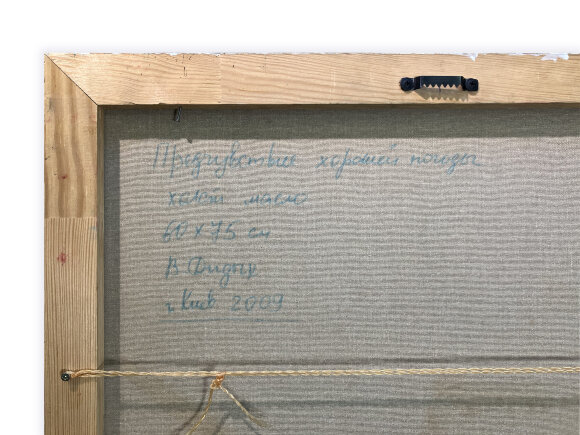 Предчувствие хорошей погоды
холст масло
60 x 75 см
В
г. Киев 2009